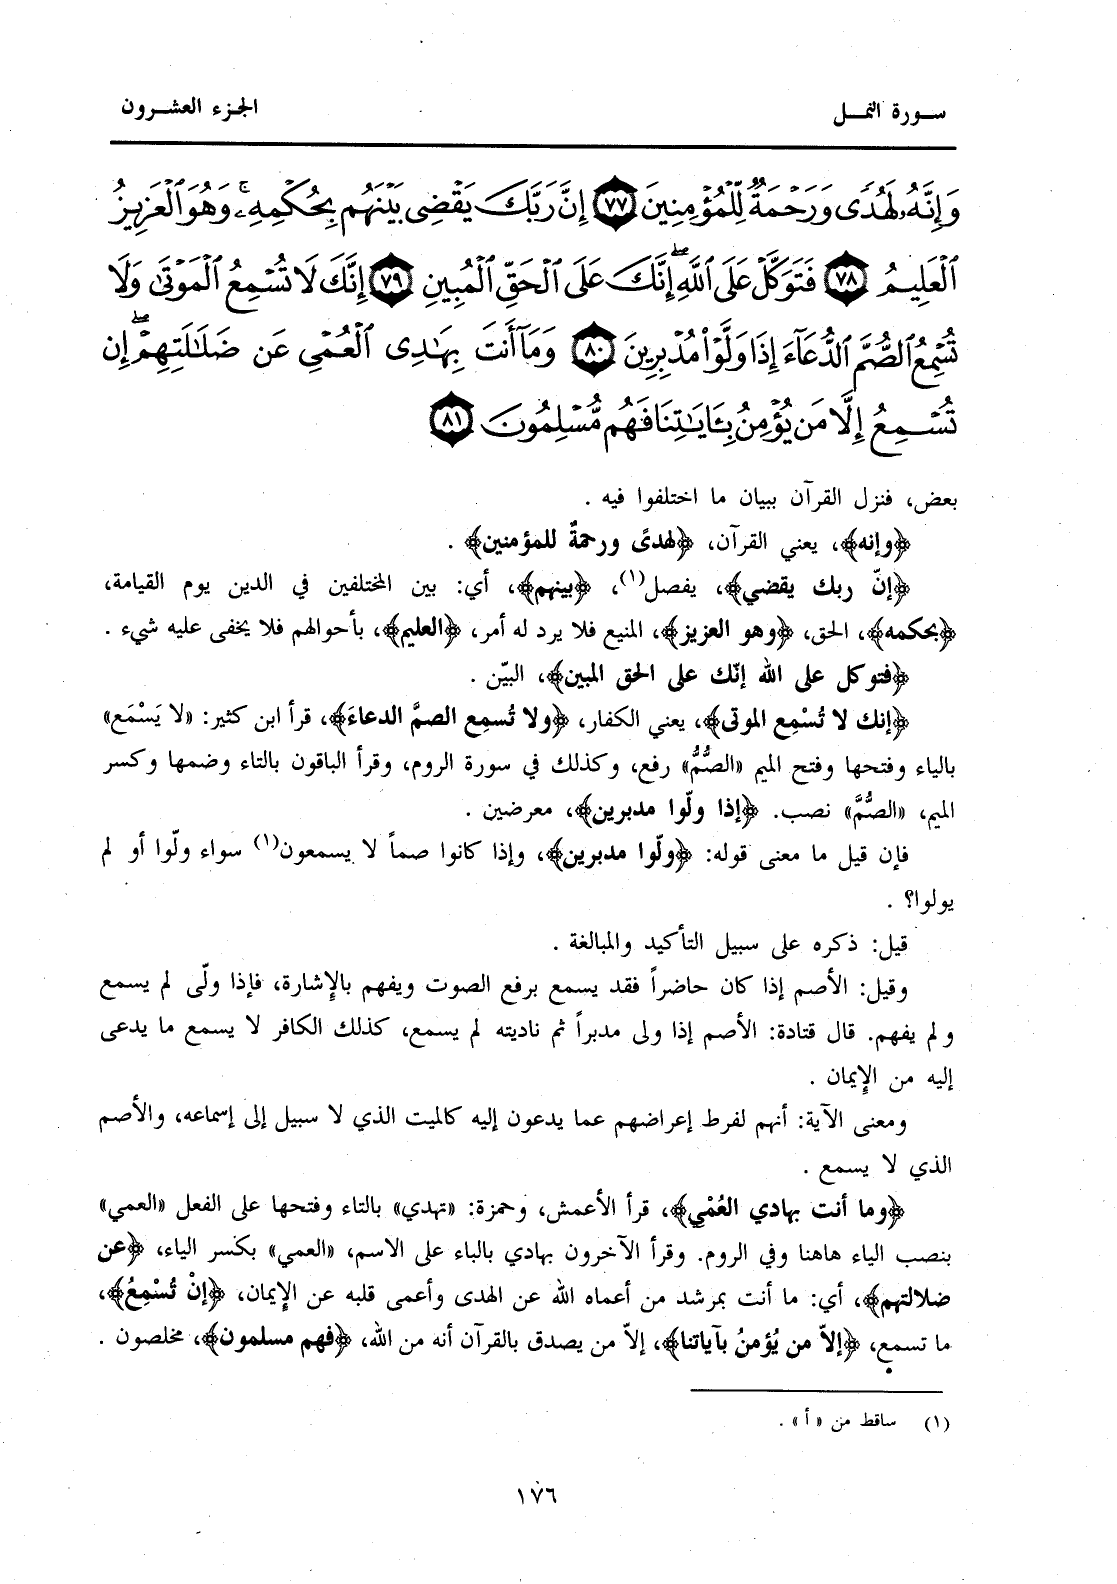 سورة النمل
الجزء العشرون
وَإِنَّهُۥ لَهُدًى وَرَحْمَةٌ لِّلْمُؤْمِنِينَ ﴿٧٧﴾ إِنَّ رَبَّكَ يَقْضِى بَيْنَهُم بِحُكْمِهِۦ ۚ وَهُوَ ٱلْعَزِيزُ
ٱلْعَلِيمُ ﴿٧٨﴾ فَتَوَكَّلْ عَلَى ٱللَّهِ ۖ إِنَّكَ عَلَى ٱلْحَقِّ ٱلْمُبِينِ ﴿٧٩﴾ إِنَّكَ لَا تُسْمِعُ ٱلْمَوْتَىٰ وَلَا
تُسْمِعُ ٱلصُّمَّ ٱلدُّعَآءَ إِذَا وَلَّوْا۟ مُدْبِرِينَ ﴿٨٠﴾ وَمَآ أَنتَ بِهَٰدِى ٱلْعُمْىِ عَن ضَلَٰلَتِهِمْ ۖ إِن
تُسْمِعُ إِلَّا مَن يُؤْمِنُ بِـَٔايَٰتِنَا فَهُم مُّسْلِمُونَ ﴿٨١﴾
بعض، فنزل القرآن ببيان ما اختلفوا فيه .
﴿وإنه﴾، يعني القرآن، ﴿لهدىً ورحمةٌ للمؤمنين﴾ .
﴿إنّ ربك يقضي﴾، يفصل(١)، ﴿بينهم﴾، أي: بين المختلفين في الدين يوم القيامة،
﴿بحكمه﴾، الحق، ﴿وهو العزيز﴾، المنيع فلا يرد له أمر، ﴿العليم﴾، بأحوالهم فلا يخفى عليه شيء .
﴿فتوكل على الله إنّك على الحق المبين﴾، البيّن .
﴿إنك لا تُسْمِع الموتى﴾، يعني الكفار، ﴿ولا تُسمِع الصمَّ الدعاءَ﴾، قرأ ابن كثير: «لا يَسْمَع»
بالياء وفتحها وفتح الميم «الصُّمُّ» رفع، وكذلك في سورة الروم، وقرأ الباقون بالتاء وضمها وكسر
الميم، «الصُّمَّ» نصب. ﴿إذا ولّوا مدبرين﴾، معرضين .
فإن قيل ما معنى قوله: ﴿ولّوا مدبرين﴾، وإذا كانوا صماً لا يسمعون(١) سواء ولّوا أو لم
يولوا؟ .
قيل: ذكره على سبيل التأكيد والمبالغة .
وقيل: الأصم إذا كان حاضراً فقد يسمع برفع الصوت ويفهم بالإشارة، فإذا ولّى لم يسمع
ولم يفهم. قال قتادة: الأصم إذا ولى مدبراً ثم ناديته لم يسمع، كذلك الكافر لا يسمع ما يدعى
إليه من الإيمان .
ومعنى الآية: أنهم لفرط إعراضهم عما يدعون إليه كالميت الذي لا سبيل إلى إسماعه، والأصم
الذي لا يسمع .
﴿وما أنت بهادي العُمْي﴾، قرأ الأعمش، وحمزة: «تهدي» بالتاء وفتحها على الفعل «العمي»
بنصب الياء هاهنا وفي الروم. وقرأ الآخرون بهادي بالباء على الاسم، «العمي» بكسر الياء، ﴿عن
ضلالتهم﴾، أي: ما أنت بمرشد من أعماه الله عن الهدى وأعمى قلبه عن الإيمان، ﴿إنْ تُسْمِعُ﴾،
ما تسمع، ﴿إلاّ من يُؤمنُ بآياتنا﴾، إلاّ من يصدق بالقرآن أنه من الله، ﴿فهم مسلمون﴾، مخلصون .
(١) ساقط من «أ» .
١٧٦